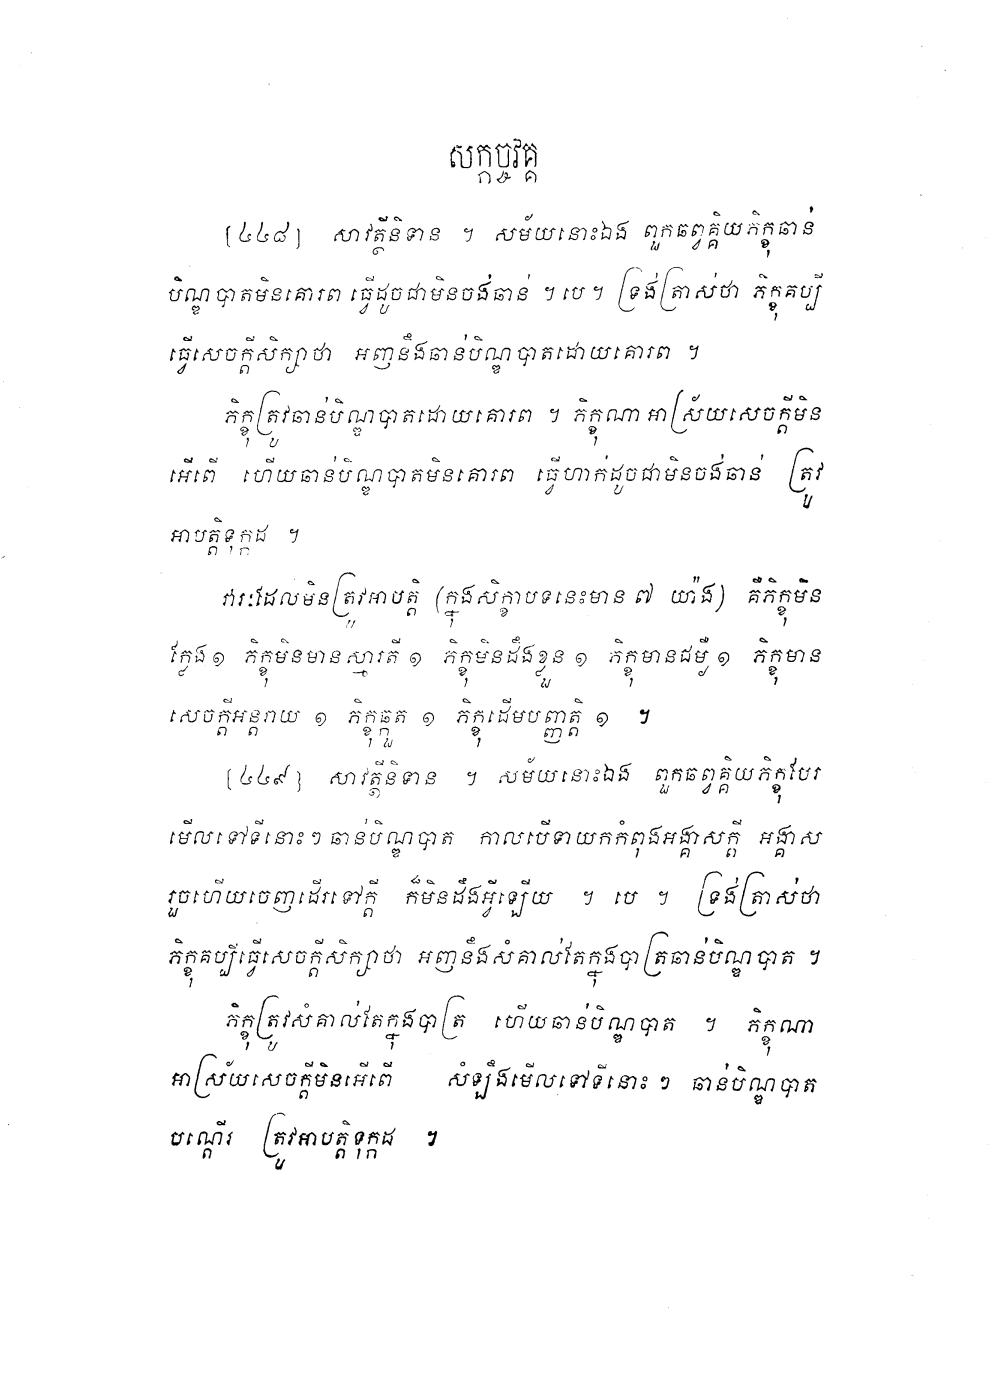 សក្កច្ចវគ្គ
[៤៤៨] សាវត្ថីនិទាន ។ សម័យនោះឯង ពួកឆព្វគ្គិយភិក្ខុឆាន់
បិណ្ឌបាតមិនគោរព ធ្វើដូចជាមិនចង់ឆាន់ ។ បេ ។ ទ្រង់ត្រាស់ថា ភិក្ខុគប្បី
ធ្វើសេចក្តីសិក្សាថា អញនឹងឆាន់បិណ្ឌបាតដោយគោរព ។
ភិក្ខុត្រូវឆាន់បិណ្ឌបាតដោយគោរព ។ ភិក្ខុណាអាស្រ័យសេចក្តីមិន
អើពើ ហើយឆាន់បិណ្ឌបាតមិនគោរព ធ្វើហាក់ដូចជាមិនចង់ឆាន់ ត្រូវ
អាបត្តិទុក្កដ ។
វារៈដែលមិនត្រូវអាបត្តិ (ក្នុងសិក្ខាបទនេះមាន ៧ យ៉ាង) គឺភិក្ខុមិន
ក្លែង ១ ភិក្ខុមិនមានស្មារតី ១ ភិក្ខុមិនដឹងខ្លួន ១ ភិក្ខុមានជម្ងឺ ១ ភិក្ខុមាន
សេចក្តីអន្តរាយ ១ ភិក្ខុឆ្កួត ១ ភិក្ខុដើមបញ្ញត្តិ ១ ។
[៤៤៩] សាវត្ថីនិទាន ។ សម័យនោះឯង ពួកឆព្វគ្គិយភិក្ខុបែរ
មើលទៅទីនោះៗ ឆាន់បិណ្ឌបាត កាលបើទាយកកំពុងអង្គាសក្តី អង្គាស
រួចហើយចេញដើរទៅក្តី ក៏មិនដឹងអ្វីឡើយ ។ បេ ។ ទ្រង់ត្រាស់ថា
ភិក្ខុគប្បីធ្វើសេចក្តីសិក្សាថា អញនឹងសំគាល់តែក្នុងបាត្រឆាន់បិណ្ឌបាត ។
ភិក្ខុត្រូវសំគាល់តែក្នុងបាត្រ ហើយឆាន់បិណ្ឌបាត ។ ភិក្ខុណា
អាស្រ័យសេចក្តីមិនអើពើ សំឡឹងមើលទៅទីនោះៗ ឆាន់បិណ្ឌបាត
បណ្តើរ ត្រូវអាបត្តិទុក្កដ ។